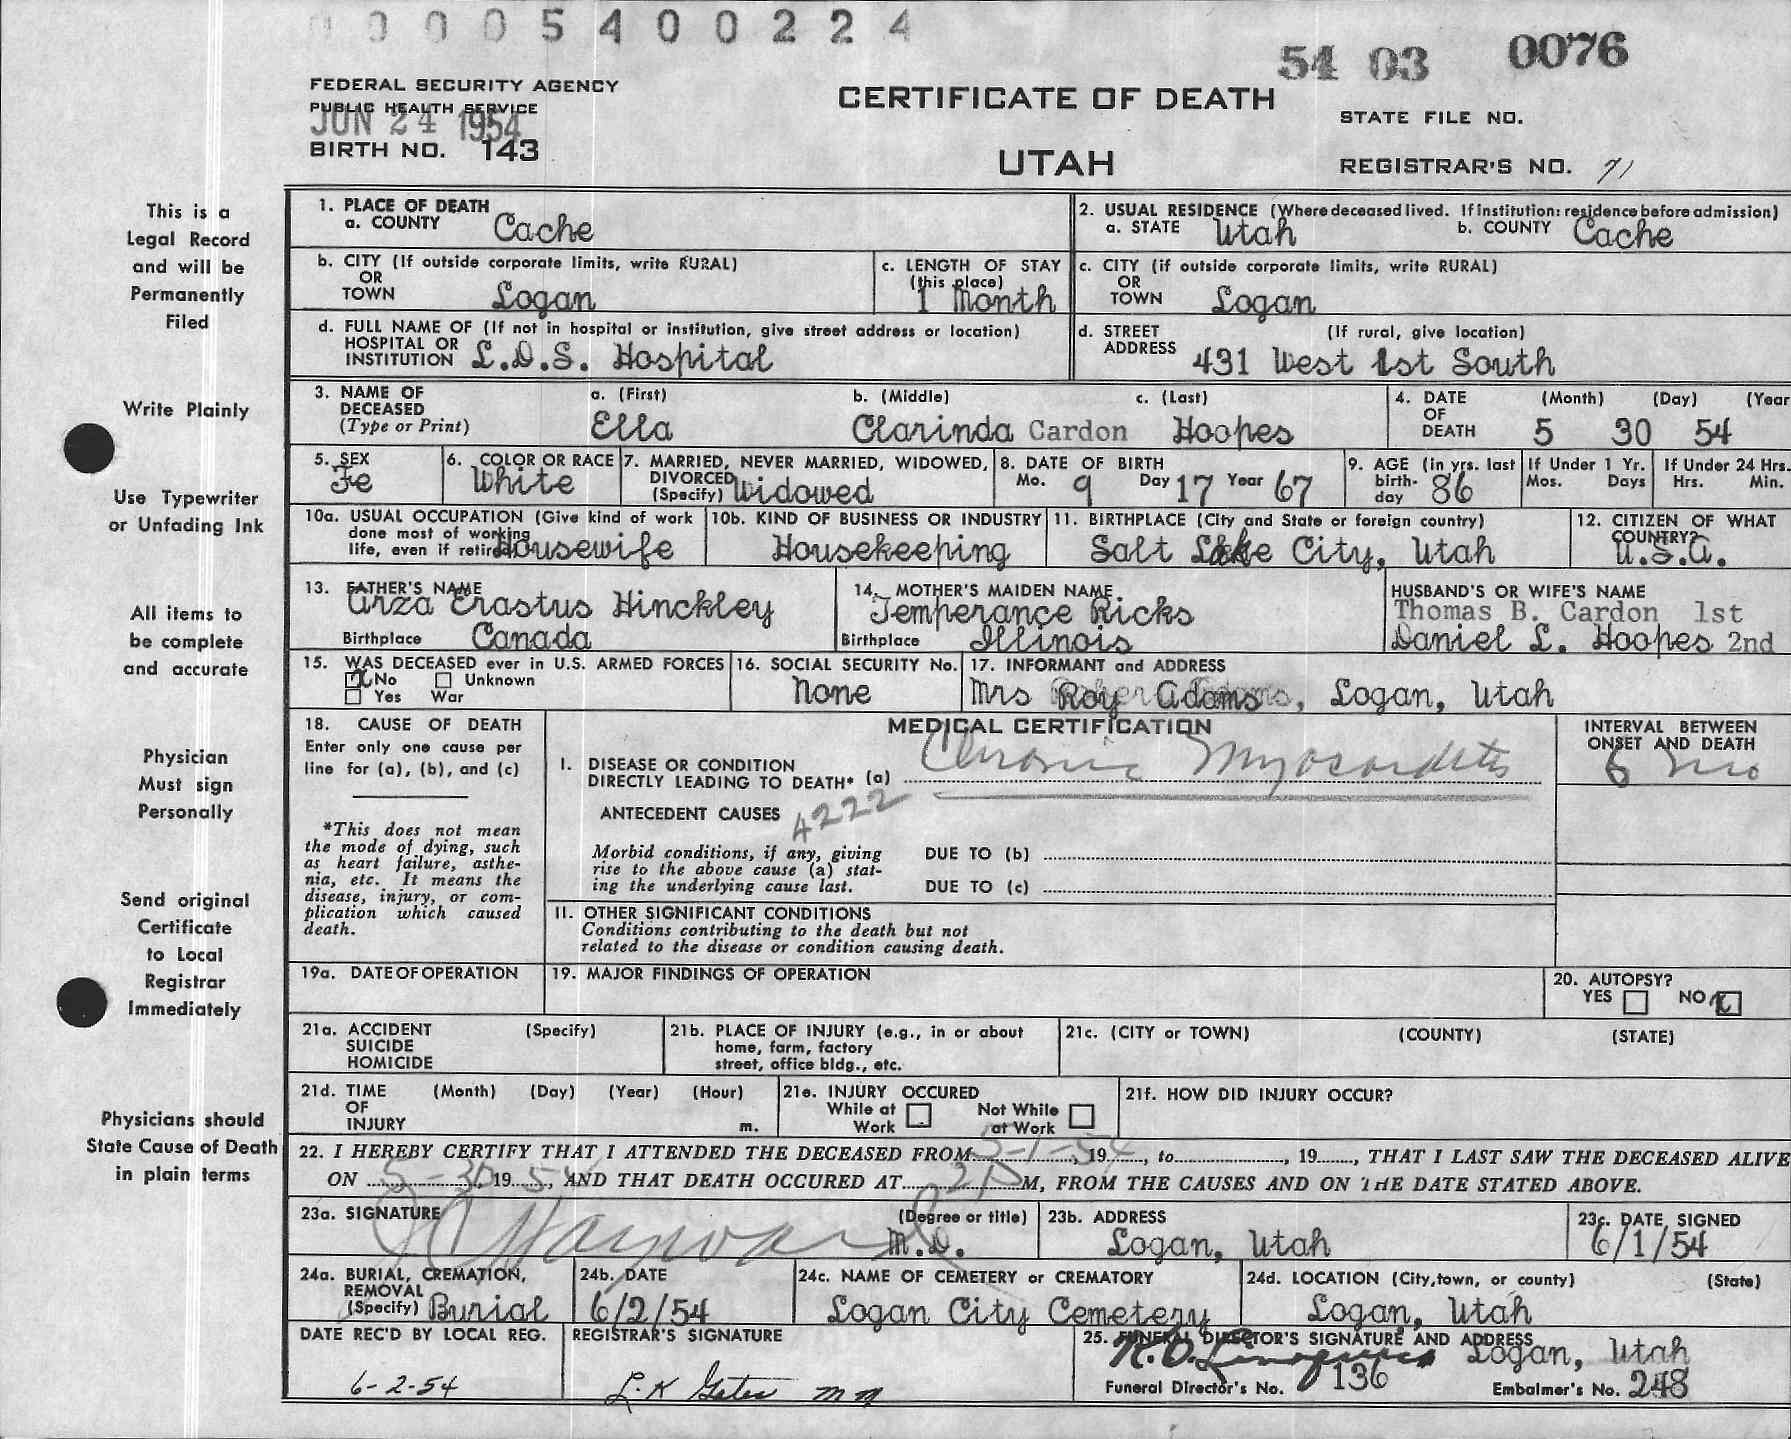 0 0 0 5 4 0 0 2 2 4
54 03 0076
FEDERAL SECURITY AGENCY
PUBLIC HEALTH SERVICE
JUN 24 1954
BIRTH NO. 143
CERTIFICATE OF DEATH
UTAH
STATE FILE NO.
REGISTRAR'S NO. 71
This is a
Legal Record
and will be
Permanently
Filed
Write Plainly
Use Typewriter
or Unfading Ink
All items to
be complete
and accurate
Physician
Must sign
Personally
Send original
Certificate
to Local
Registrar
Immediately
Physicians should
State Cause of Death
in plain terms
1. PLACE OF DEATH
a. COUNTY Cache
2. USUAL RESIDENCE (Where deceased lived. If institution: residence before admission)
a. STATE Utah b. COUNTY Cache
b. CITY (If outside corporate limits, write RURAL)
OR
TOWN Logan
c. LENGTH OF STAY
(this place)
1 Month
c. CITY (if outside corporate limits, write RURAL)
OR
TOWN Logan
d. FULL NAME OF (If not in hospital or institution, give street address or location)
HOSPITAL OR
INSTITUTION L.D.S. Hospital
d. STREET (If rural, give location)
ADDRESS 431 West 1st South
3. NAME OF DECEASED (Type or Print)
a. (First) b. (Middle) c. (Last)
Ella Clarinda Cardon Hoopes
4. DATE OF DEATH (Month) (Day) (Year
5 30 54
5. SEX
Fe
6. COLOR OR RACE
White
7. MARRIED, NEVER MARRIED, WIDOWED,
DIVORCED
(Specify) Widowed
8. DATE OF BIRTH
Mo. 9 Day 17 Year 67
9. AGE (in yrs. last
birth-
day 86
If Under 1 Yr.
Mos. Days
If Under 24 Hrs.
Hrs. Min.
10a. USUAL OCCUPATION (Give kind of work
done most of working
life, even if retired Housewife
10b. KIND OF BUSINESS OR INDUSTRY
Housekeeping
11. BIRTHPLACE (City and State or foreign country)
Salt Lake City, Utah
12. CITIZEN OF WHAT
COUNTRY?
U.S.A.
13. FATHER'S NAME
Arza Erastus Hinckley
Birthplace Canada
14. MOTHER'S MAIDEN NAME
Temperance Ricks
Birthplace Illinois
HUSBAND'S OR WIFE'S NAME
Thomas B. Cardon 1st
Daniel L. Hoopes 2nd
15. WAS DECEASED ever in U.S. ARMED FORCES
X No Unknown
Yes War
16. SOCIAL SECURITY No.
None
17. INFORMANT and ADDRESS
Mrs Roy Adams, Logan, Utah
18. CAUSE OF DEATH
Enter only one cause per
line for (a), (b), and (c)
*This does not mean
the mode of dying, such
as heart failure, asthe-
nia, etc. It means the
disease, injury, or com-
plication which caused
death.
MEDICAL CERTIFICATION
I. DISEASE OR CONDITION
DIRECTLY LEADING TO DEATH* (a) Chronic Myocarditis
INTERVAL BETWEEN
ONSET AND DEATH
6 mo
ANTECEDENT CAUSES
4222
Morbid conditions, if any, giving
rise to the above cause (a) stat-
ing the underlying cause last.
DUE TO (b)
DUE TO (c)
II. OTHER SIGNIFICANT CONDITIONS
Conditions contributing to the death but not
related to the disease or condition causing death.
19a. DATE OF OPERATION
19. MAJOR FINDINGS OF OPERATION
20. AUTOPSY?
YES NO X
21a. ACCIDENT (Specify)
SUICIDE
HOMICIDE
21b. PLACE OF INJURY (e.g., in or about
home, farm, factory
street, office bldg., etc.
21c. (CITY or TOWN) (COUNTY) (STATE)
21d. TIME (Month) (Day) (Year) (Hour)
OF
INJURY m.
21e. INJURY OCCURED
While at Work Not While at Work
21f. HOW DID INJURY OCCUR?
22. I HEREBY CERTIFY THAT I ATTENDED THE DECEASED FROM 5-1-54, 19......, to................, 19......, THAT I LAST SAW THE DECEASED ALIVE
ON 5-30 1954, AND THAT DEATH OCCURED AT M, FROM THE CAUSES AND ON THE DATE STATED ABOVE.
23a. SIGNATURE (Degree or title)
Hayward M.D.
23b. ADDRESS
Logan, Utah
23c. DATE SIGNED
6/1/54
24a. BURIAL, CREMATION,
REMOVAL
(Specify) Burial
24b. DATE
6/2/54
24c. NAME OF CEMETERY or CREMATORY
Logan City Cemetery
24d. LOCATION (City, town, or county) (State)
Logan, Utah
DATE REC'D BY LOCAL REG.
6-2-54
REGISTRAR'S SIGNATURE
L. K Gates
25. FUNERAL DIRECTOR'S SIGNATURE AND ADDRESS
Logan, Utah
Funeral Director's No. 136 Embalmer's No. 248